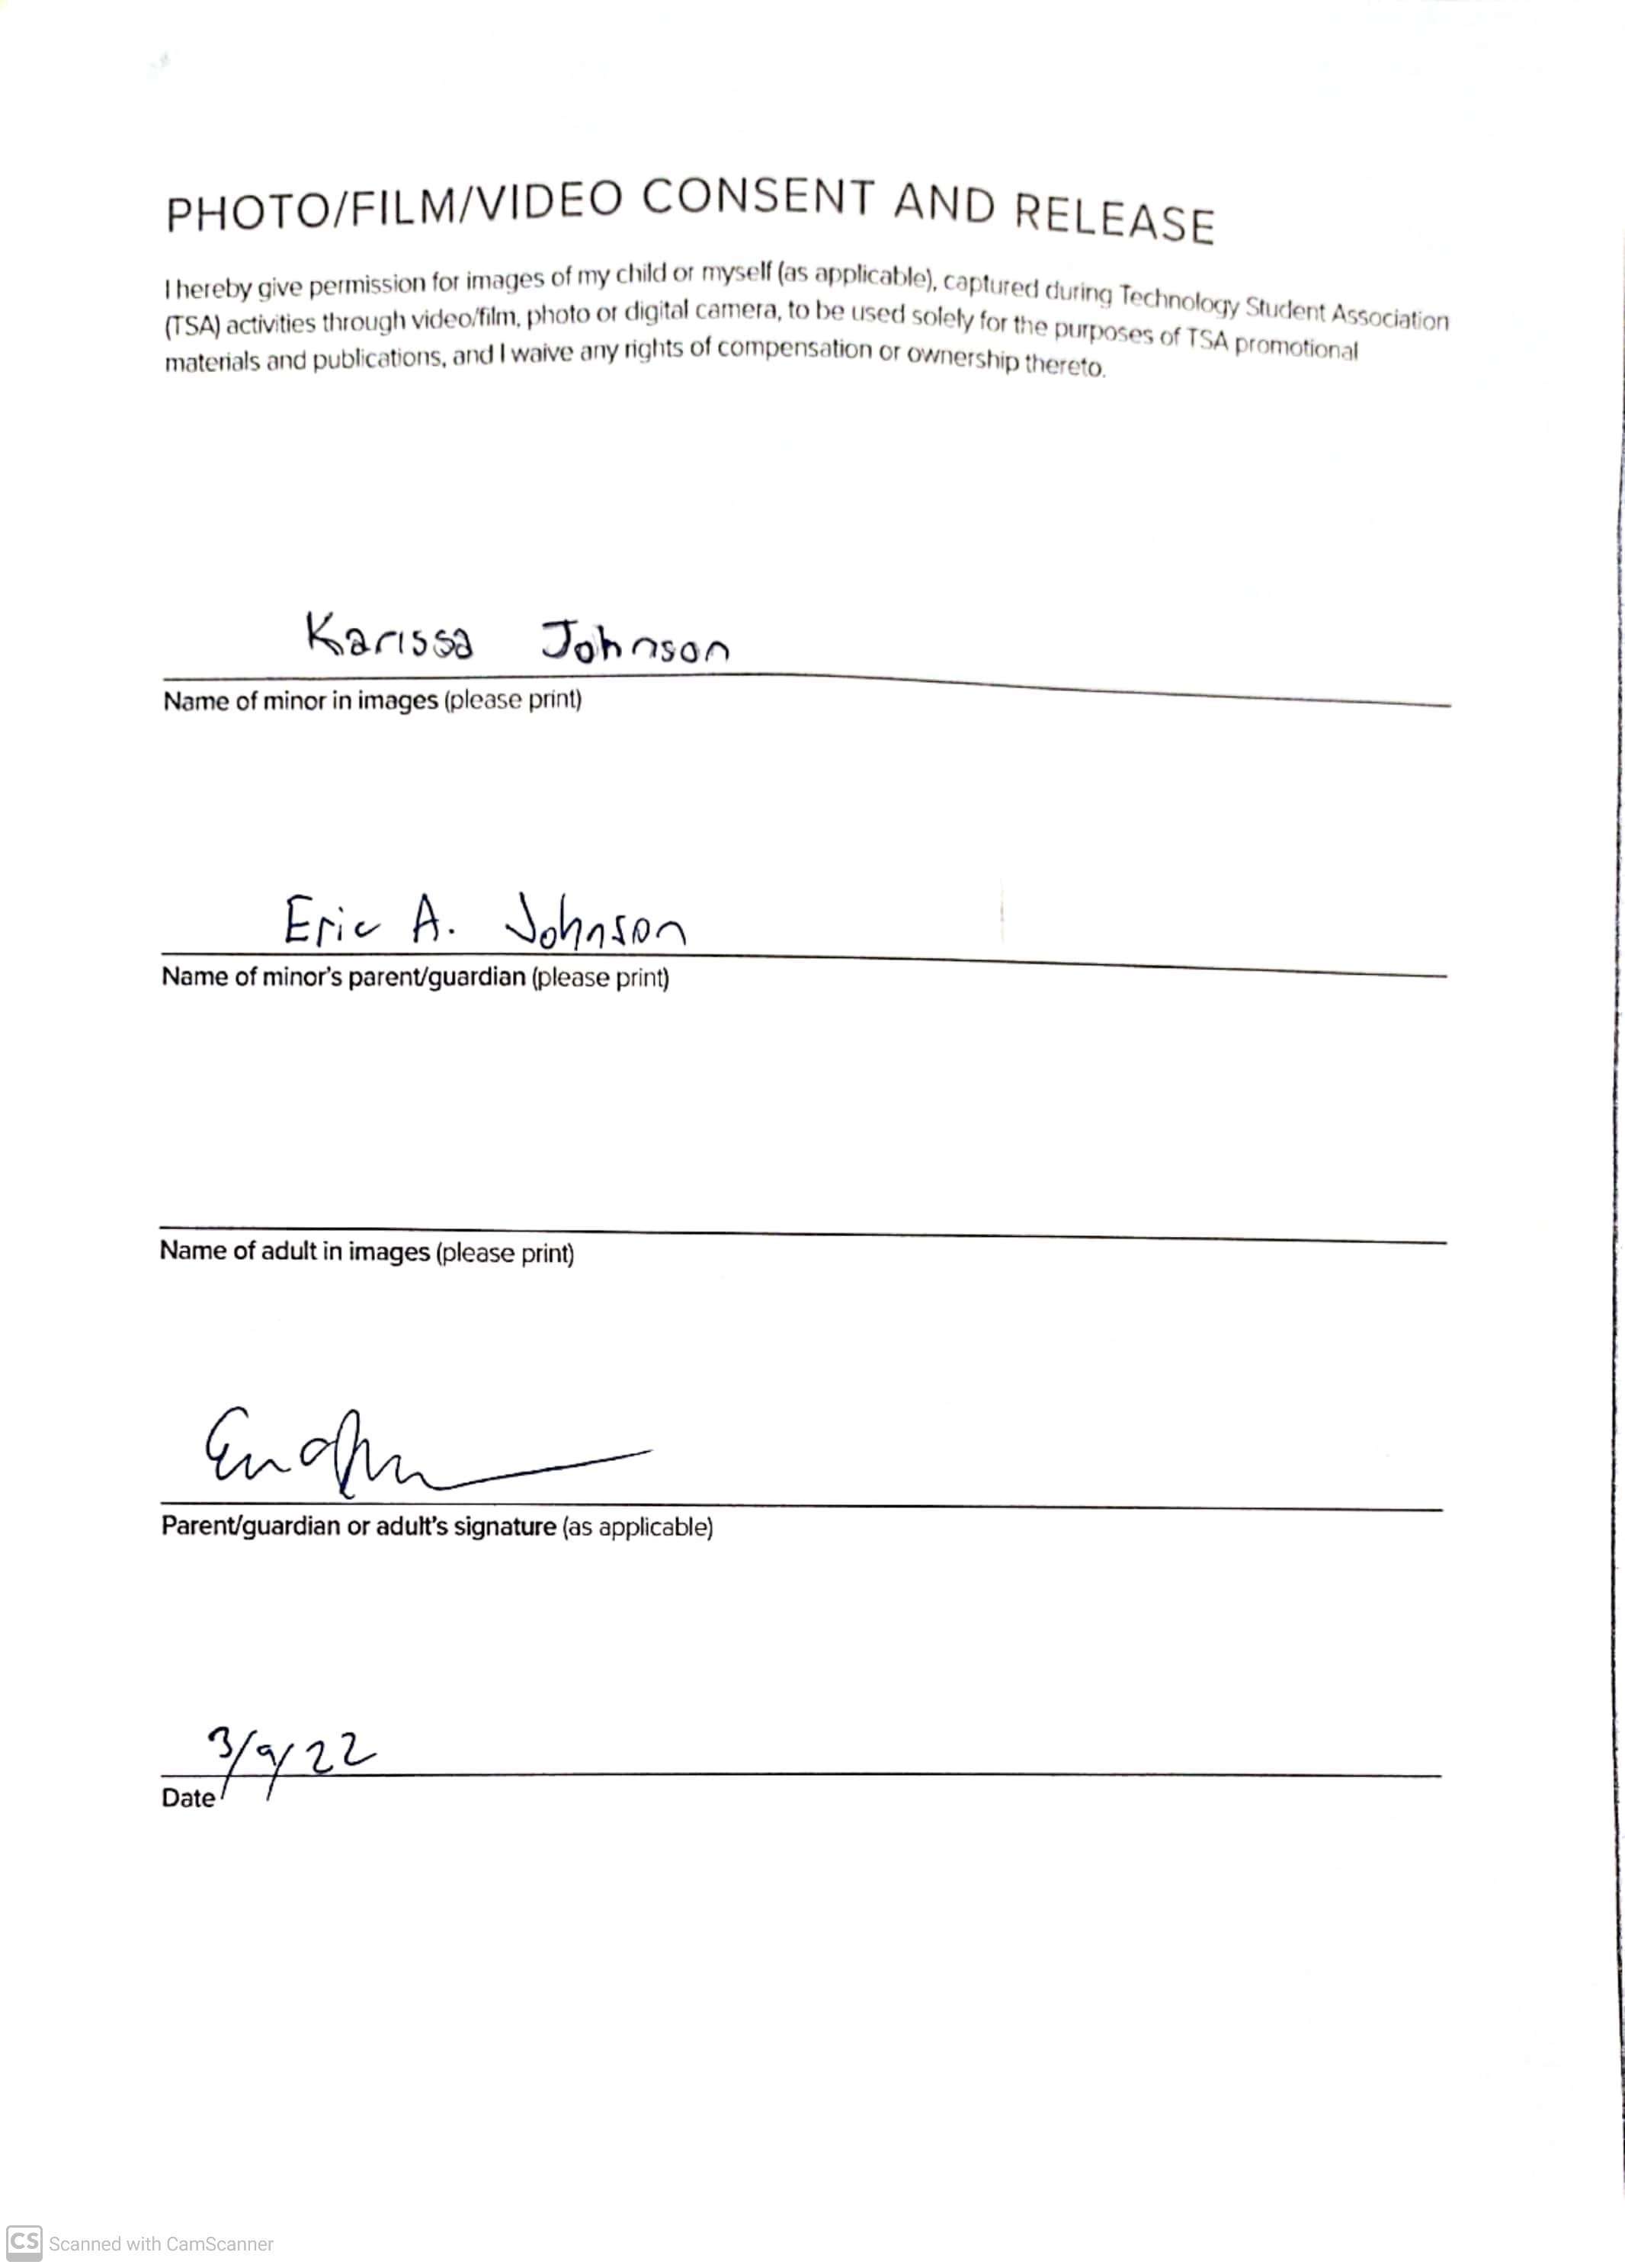 PHOTO/FILM/VIDEO CONSENT AND RELEASE
I hereby give permission for images of my child or myself (as applicable), captured during Technology Student Association
(TSA) activities through video/film, photo or digital camera, to be used solely for the purposes of TSA promotional
materials and publications, and I waive any rights of compensation or ownership thereto.
Karissa Johnson
Name of minor in images (please print)
Eric A. Johnson
Name of minor's parent/guardian (please print)
Name of adult in images (please print)
Parent/guardian or adult's signature (as applicable)
3/9/22
Date
CS Scanned with CamScanner